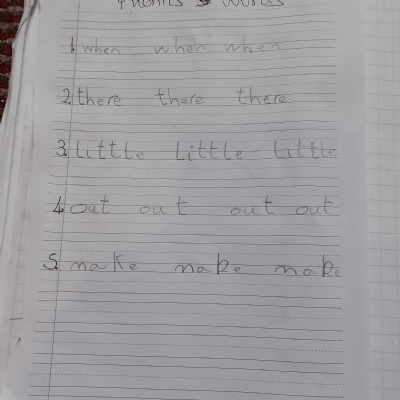 Phonics 5 Words
1. when when when
2. there there there
3. little little little
4. out out out out
5. make make make